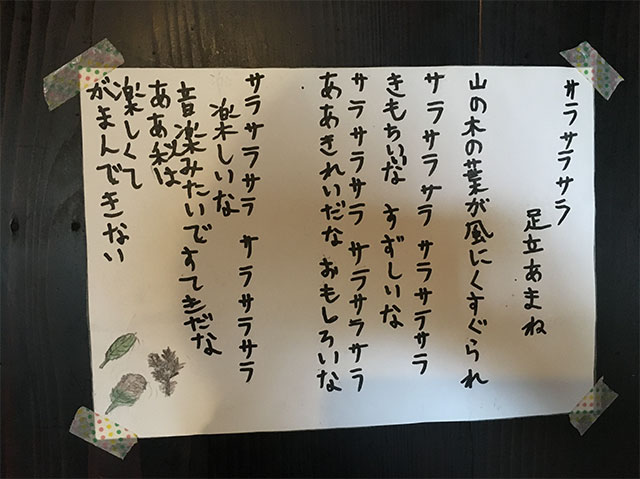 サラサラサラ
足立あまね
山の木の葉が風にくすぐられ
サラサラサラ サラサラサラ
きもちいいな すずしいな
サラサラサラサラ サラサラサラ
ああきれいだな おもしろいな
サラサラサラ サラサラサラ
楽しいな
音楽みたいですてきだな
ああ秋は
楽しくて
がまんできない